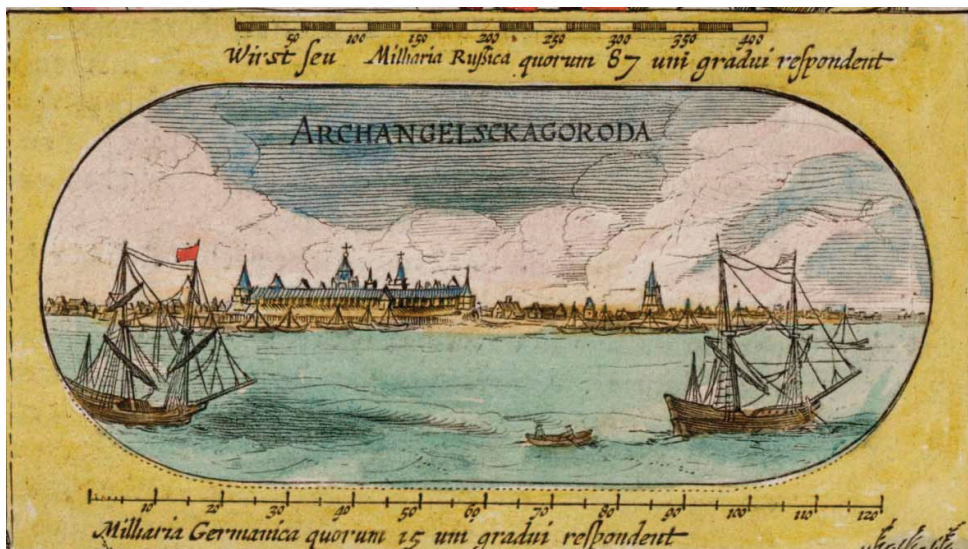 50 100 150 200 250 300 350 400
Wirst ſeu Milliaria Ruſsica quorum 87 uni gradui reſpondent
ARCHANGELSCKAGORODA
10 20 30 40 50 60 70 80 90 100 110 120
Milliaria Germanica quorum 15 uni gradui reſpondent